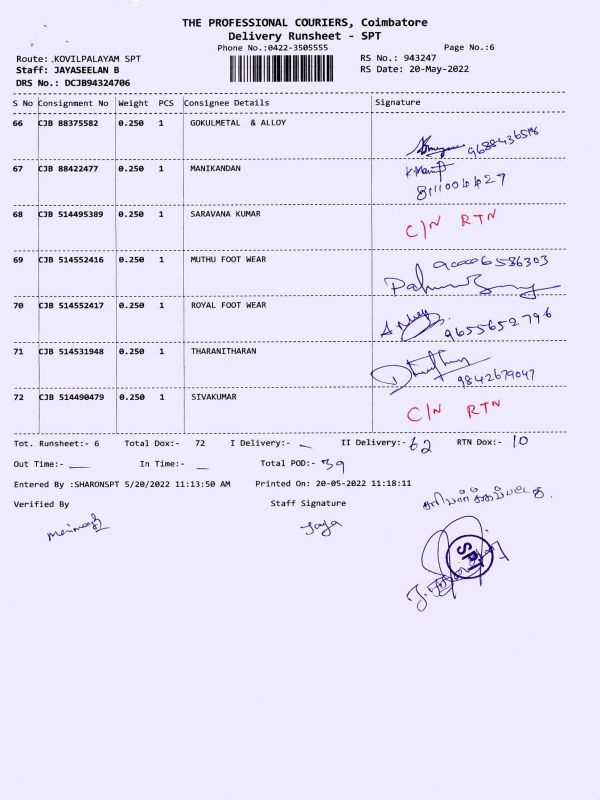 THE PROFESSIONAL COURIERS, Coimbatore
Delivery Runsheet - SPT
Phone No.:0422-3505555 Page No.:6
Route: .KOVILPALAYAM SPT RS No.: 943247
Staff: JAYASEELAN B RS Date: 20-May-2022
DRS No.: DCJB94324706
S No Consignment No Weight PCS Consignee Details Signature
66 CJB 88375582 0.250 1 GOKULMETAL & ALLOY
9688436518
67 CJB 88422477 0.250 1 MANIKANDAN
8111004427
68 CJB 514495389 0.250 1 SARAVANA KUMAR C/N RTN
69 CJB 514552416 0.250 1 MUTHU FOOT WEAR
70 CJB 514552417 0.250 1 ROYAL FOOT WEAR
9655652796
71 CJB 514531948 0.250 1 THARANITHARAN
9842679047
72 CJB 514490479 0.250 1 SIVAKUMAR C/N RTN
Tot. Runsheet:- 6 Total Dox:- 72 I Delivery:- — II Delivery:- 62 RTN Dox:- 10
Out Time:- — In Time:- — Total POD:- 39
Entered By :SHARONSPT 5/20/2022 11:13:50 AM Printed On: 20-05-2022 11:18:11
Verified By Staff Signature
Jaya
SPT